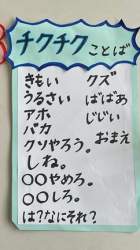 チクチクことば
きもい
うるさい
アホ
バカ
クソやろう。
しね。
○○やめろ。
○○しろ。
は?なにそれ?
クズ
ばばあ
じじい
おまえ